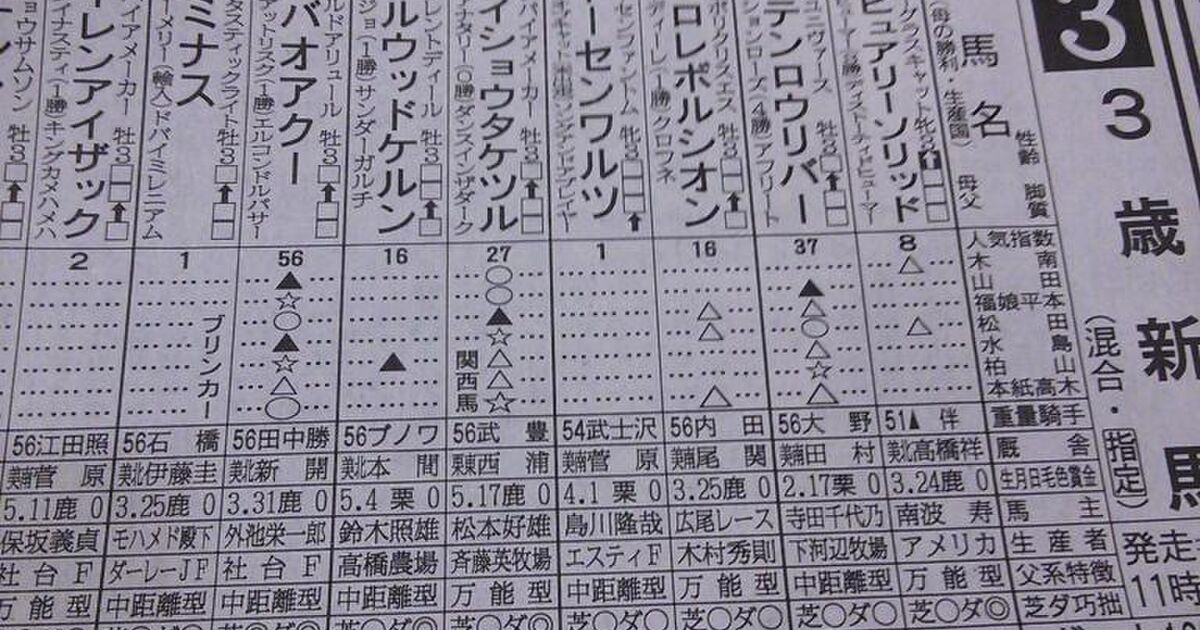 3
3歳新馬
(混合・指定)
発走
11時
馬名
性齢 脚質
(母の勝利 生産国) 母父
人気指数
木南
山田
福娘平本
松田
水島
柏山
本紙高木
重量騎手
厩舎
生月日毛色賞金
馬主
生産者
父系特徴
芝ダ巧拙
ピュアリーソリッド
8
△
△
51▲伴
美北高橋祥
3.24鹿0
南波寿
アメリカ
万能型
芝○ダ◎
テンロウリバー
牡3
(4勝)アフリート
37
▲
△
○
△
☆
△
56大野
美南田村
2.17栗0
寺田千代乃
下河辺牧場
中距離型
芝○ダ○
ロレボルシオン
牡3
(1勝)クロフネ
16
△
△
△
56内田
美南尾関
3.25鹿0
広尾レース
木村秀則
万能型
芝○ダ○
ーセンワルツ
牝3
1
54武士沢
美南菅原
4.1栗0
島川隆哉
エスティF
中距離型
芝○ダ○
イショウタケツル
イアメーカー 牡3
(0勝)ダンスインザダーク
27
○
○
▲
☆
△
△
☆
関西馬
56武豊
栗東西浦
5.17鹿0
松本好雄
斉藤英牧場
万能型
芝○ダ○
ルウッドケルン
レントディール 牡3
ジョ(1勝)サンダーガルチ
16
▲
56ブノワ
美北本間
5.4栗0
鈴木照雄
高橋農場
中距離型
芝○ダ○
バオアクー
ルドアリュール 牡3
アットリスク(1勝)エルコンドルパサー
56
▲
☆
○
▲
☆
△
○
56田中勝
美北新開
3.31鹿0
外池栄一郎
社台F
中距離型
ミナス
タスティックライト 牡3
ーメリー(輸入)ドバイミレニアム
1
ブリンカー
56石橋
美北伊藤圭
3.25鹿0
モハメド殿下
ダーレーJF
中距離型
ーレンアイザック
イアメーカー 牡3
イナスティ(1勝)キングカメハメハ
2
56江田照
美南菅原
5.11鹿0
保坂義貞
社台F
万能型
ョウサムソン 牡3